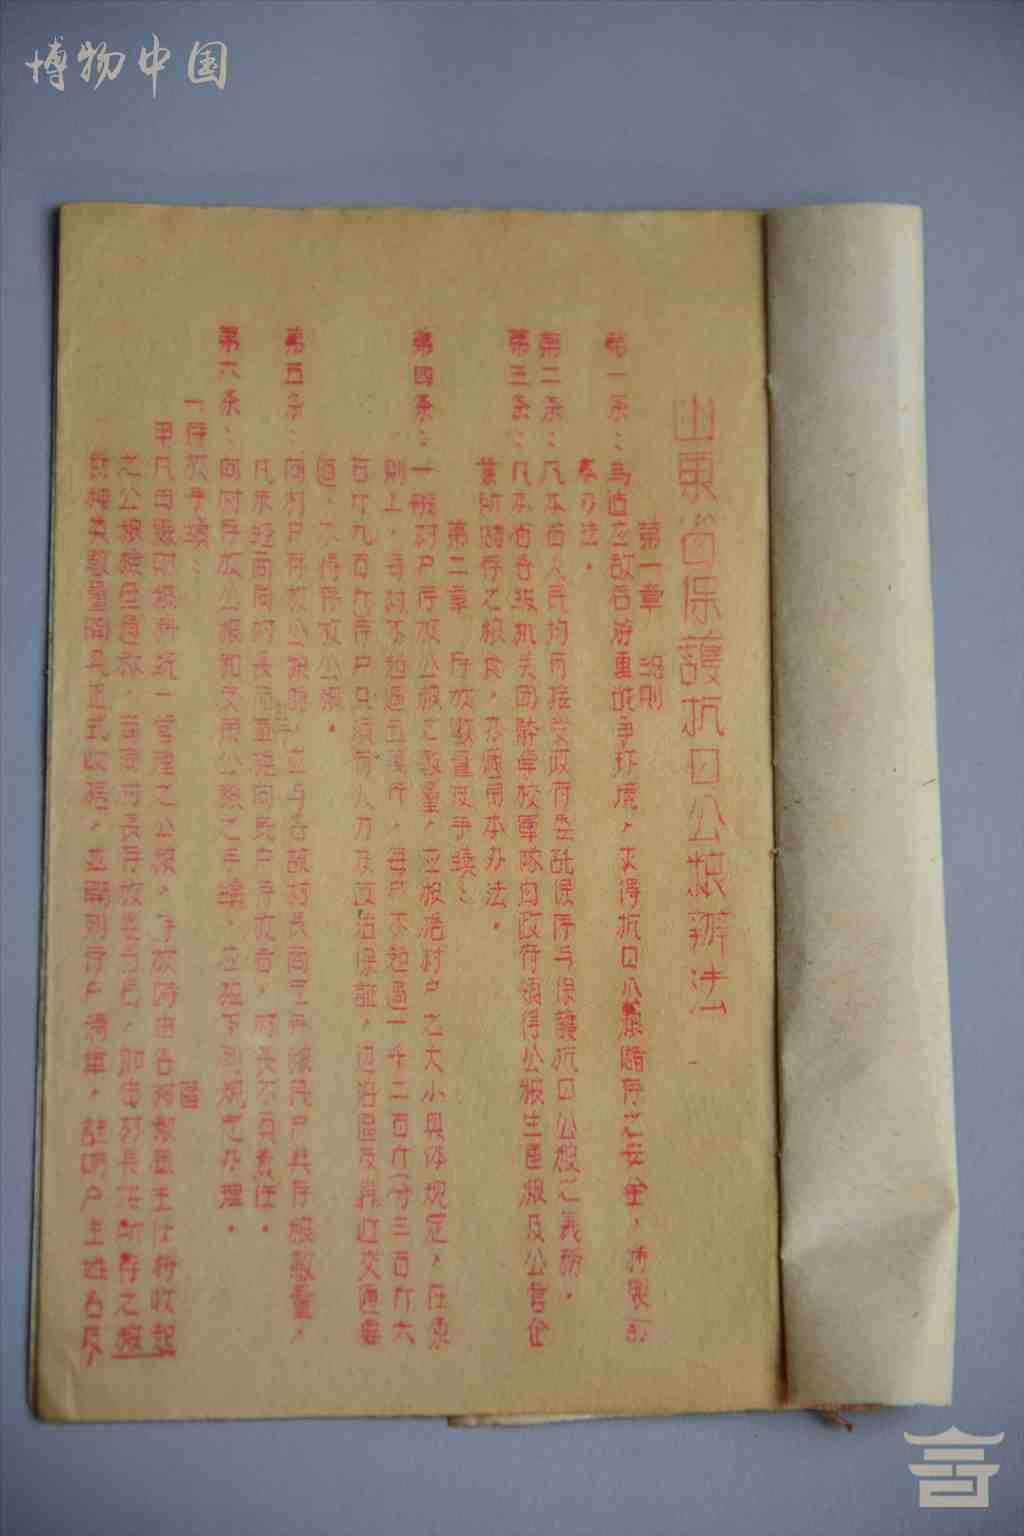 博物中国
山東省保護抗日公粮辦法
第一章 总則
第一条：为适应敌后游重战争环境，求得抗日公粮储存之安全，特制訂
本办法。
第二条：凡本省人民均有接受政府委託保存与保護抗日公粮之義務，
第三条：凡本省各級机关团體学校軍队向政府領得公粮生産粮及公营企
業所储存之粮食，亦适用本办法。
第二章 存放数量及手續：
第四条：一般村户存放公粮之数量，应根据村户之大小具体规定，在原
則上，每村不超過五萬斤，每户不超過一千二百斤(分三百斤六
百斤九百斤存户只須有人力及政治保証，边沿區及靠近交通要
道，不得存放公粮。
第五条：向村户存放公粮时，应与各該村長商定存粮民户共存粮数量，
凡未經商同村長而直接向民户存放者，村長不負責任。
第六条：向村存放公粮和支用公粮之手續，应按下列規定办理。
一存放手續：
甲凡由縣財粮科統一管理之公粮，存放時由各区粮庫主任将收起
之公粮協同區
村長将所存之粮
食种类数量開具正式收据，並開列存户清單，註明户主姓名